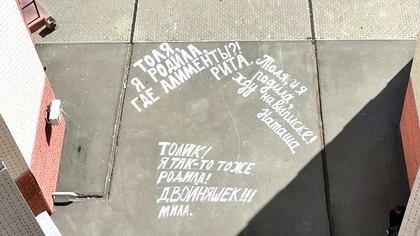 ТОЛЯ
Я РОДИЛА
ГДЕ АЛИМЕНТЫ?!
РИТА.
Толя, и я
родила,
жду на выписке!
Наташа
ТОЛИК!
Я ТАК-ТО ТОЖЕ
РОДИЛА!
ДВОЙНЯШЕК!!!
МИЛА.